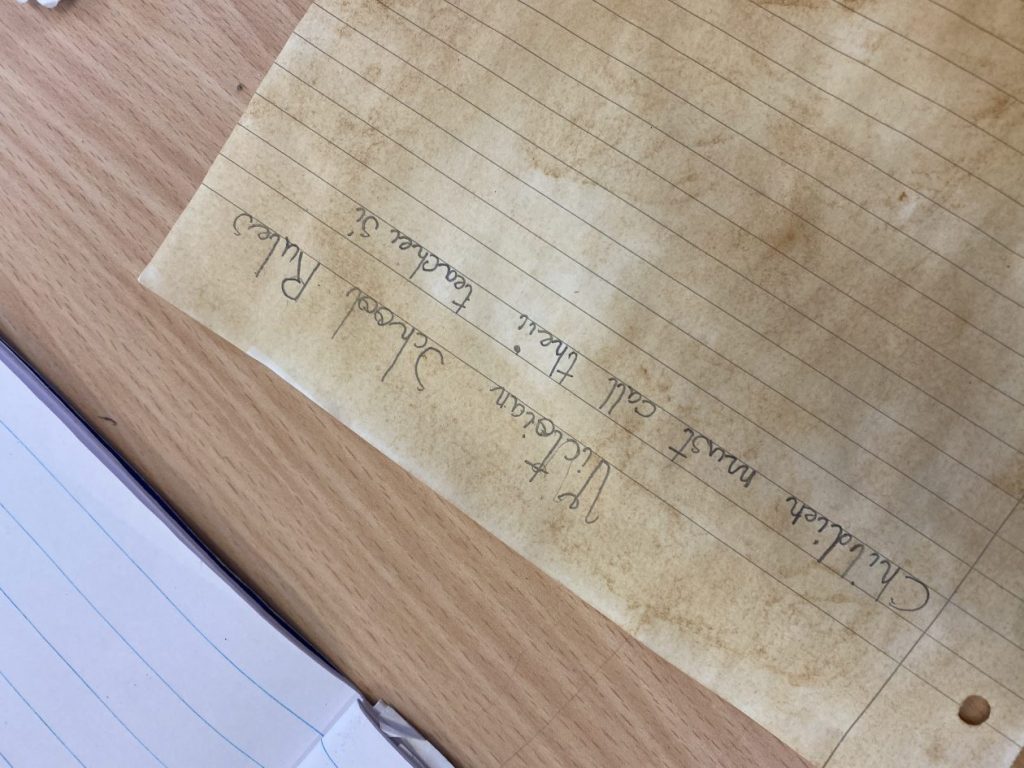 Victorian School Rules
Children must call their teacher si